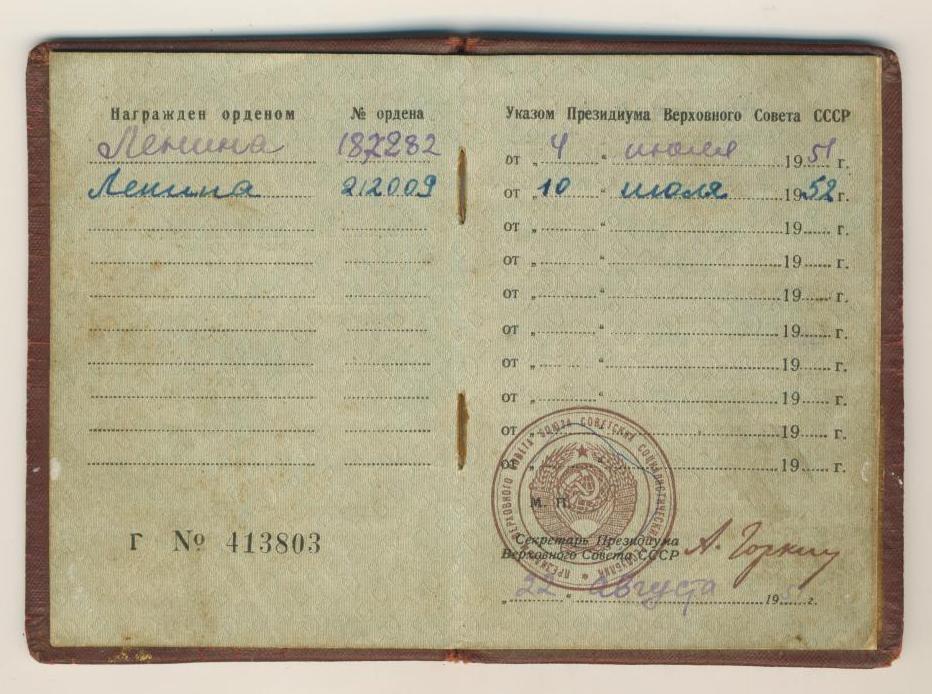 Награжден орденом № ордена
Ленина 187282
Ленина 212009
Г № 413803
Указом Президиума Верховного Совета СССР
от „ 4 “ июля 1951 г.
от „ 10 “ июля 1952 г.
от „ “ 19 г.
от „ “ 19 г.
от „ “ 19 г.
от „ “ 19 г.
от „ “ 19 г.
от „ “ 19 г.
от „ “ 19 г.
от „ “ 19 г.
М. П.
Секретарь Президиума
Верховного Совета СССР
А. Горкин
„ 22 “ августа 1951 г.
ПРЕЗИДИУМ ВЕРХОВНОГО СОВЕТА СОЮЗА СОВЕТСКИХ СОЦИАЛИСТИЧЕСКИХ РЕСПУБЛИК